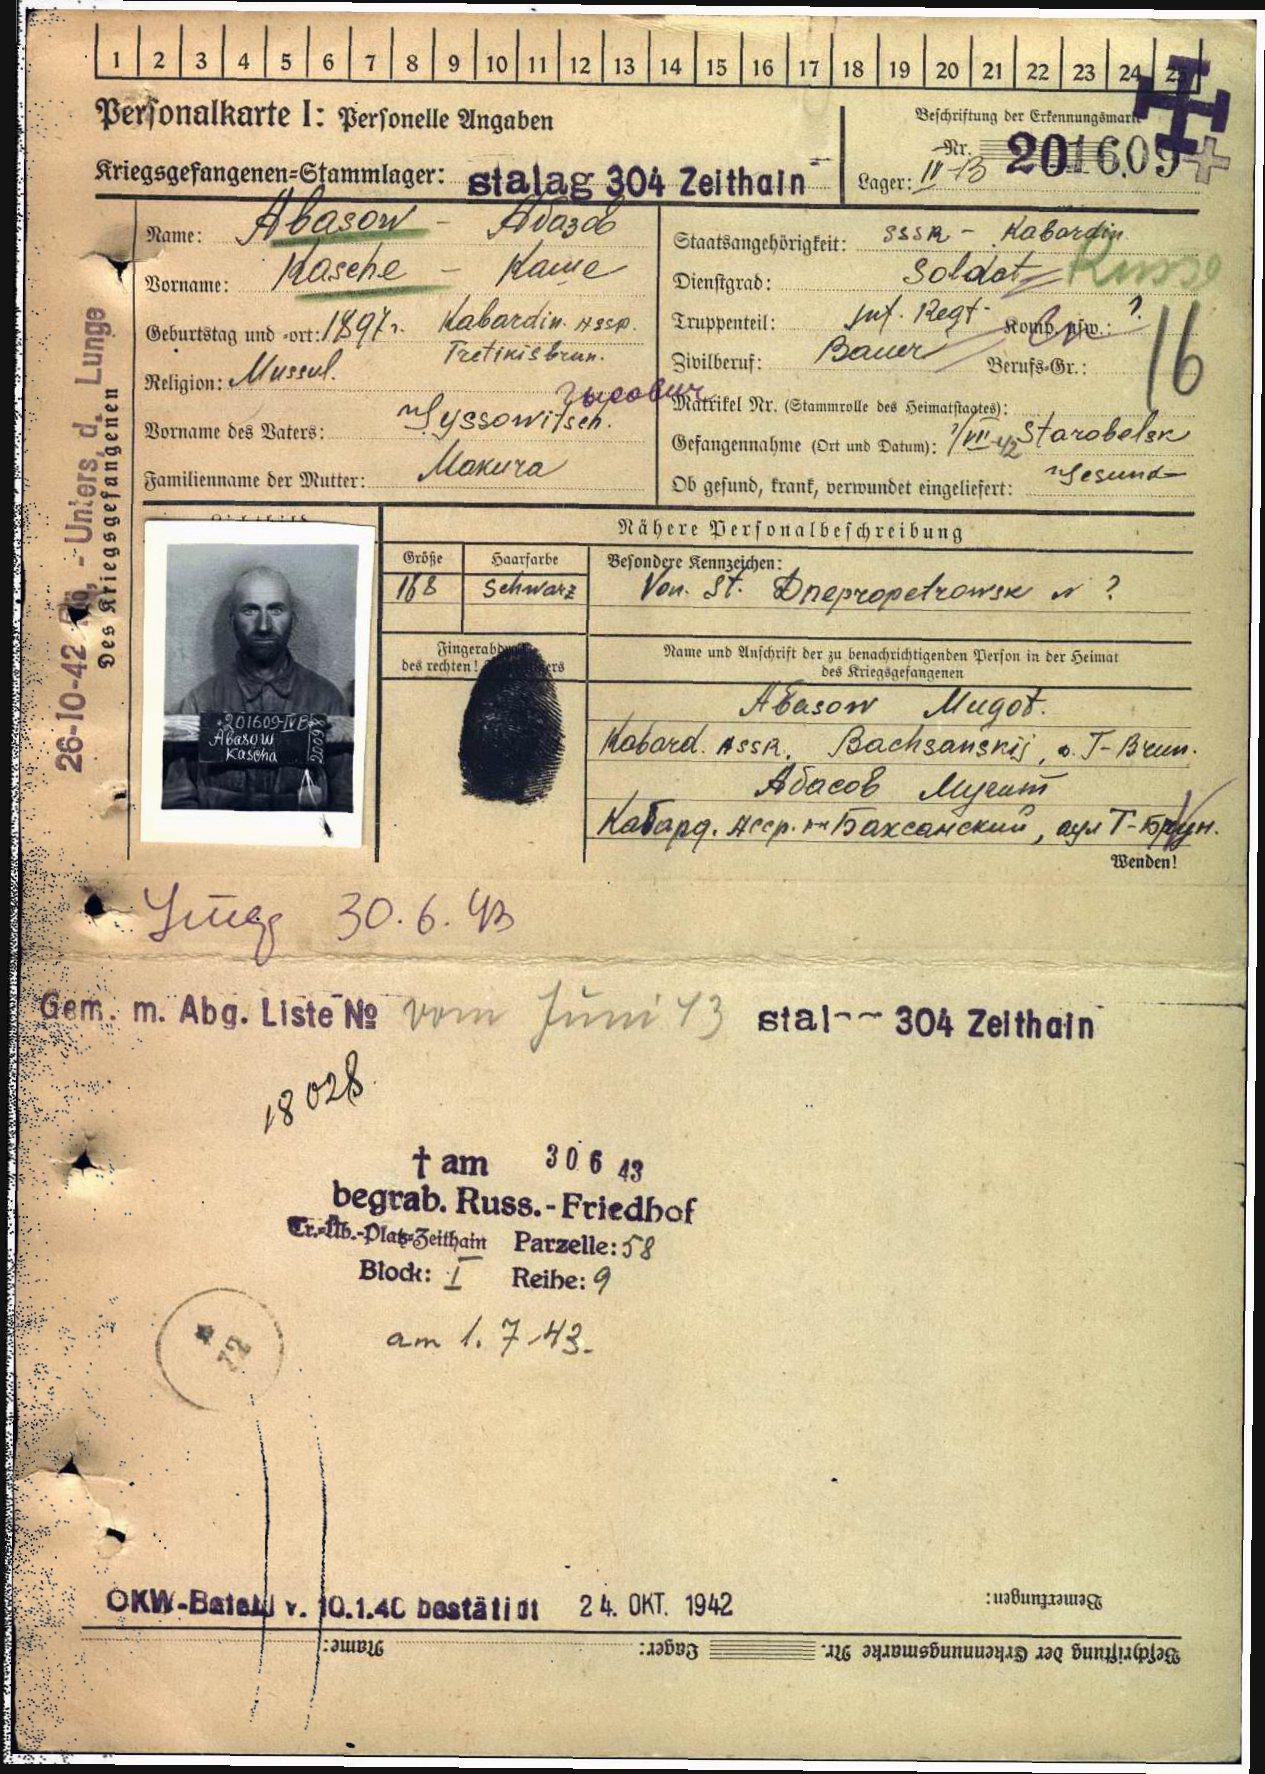 1 2 3 4 5 6 7 8 9 10 11 12 13 14 15 16 17 18 19 20 21 22 23 24 25
Personalkarte I: Personelle Angaben
Beschriftung der Erkennungsmarke
Nr. 201609
Kriegsgefangenen-Stammlager: stalag 304 Zeithain
Lager:
Name: Abasow - Абазов
Vorname: Kasche - Каше
Geburtstag und -ort: 1897 г. Kabardin. ASSR.
Religion: Mussul.
Vorname des Vaters:
Familienname der Mutter: Makura
Staatsangehörigkeit: SSSR - Kabardin
Dienstgrad: Soldat Russe
Truppenteil: Inf. Regt. Komp. usw.: ?
16
Zivilberuf: Bauer Berufs-Gr.:
Matrikel Nr. (Stammrolle des Heimatstaates):
Gefangennahme (Ort und Datum): ?/VII-42 Starobelsk
Ob gesund, krank, verwundet eingeliefert: Gesund
26-10-42 - Unters. d. Lunge
Des Kriegsgefangenen
Nähere Personalbeschreibung
Größe Haarfarbe Besondere Kennzeichen:
168 Schwarz Von. St. Dnepropetrowsk ?
201609-IVB
Abasow
Kascha
Fingerabdruck
des rechten
Name und Anschrift der zu benachrichtigenden Person in der Heimat
des Kriegsgefangenen
Abasow Mugot.
Kabard. ASSR. Bachsanskij, a. T-Brun.
Абасов Мугат
Кабард. Асср. р-н Баксанский, аул Т-Брун.
Wenden!
30.6.43
Gem. m. Abg. Liste № vom Juni 43 stal 304 Zeithain
18028
† am 30 6 43
begrab. Russ.-Friedhof
Tr.-Üb.-Platz-Zeithain Parzelle: 58
Block: I Reihe: 9
am 1.7.43.
72
OKW-Befehl v. 10.1.40 bestätigt 24. OKT. 1942
Bemerkungen:
Beschriftung der Erkennungsmarke Nr. Lager: Name: